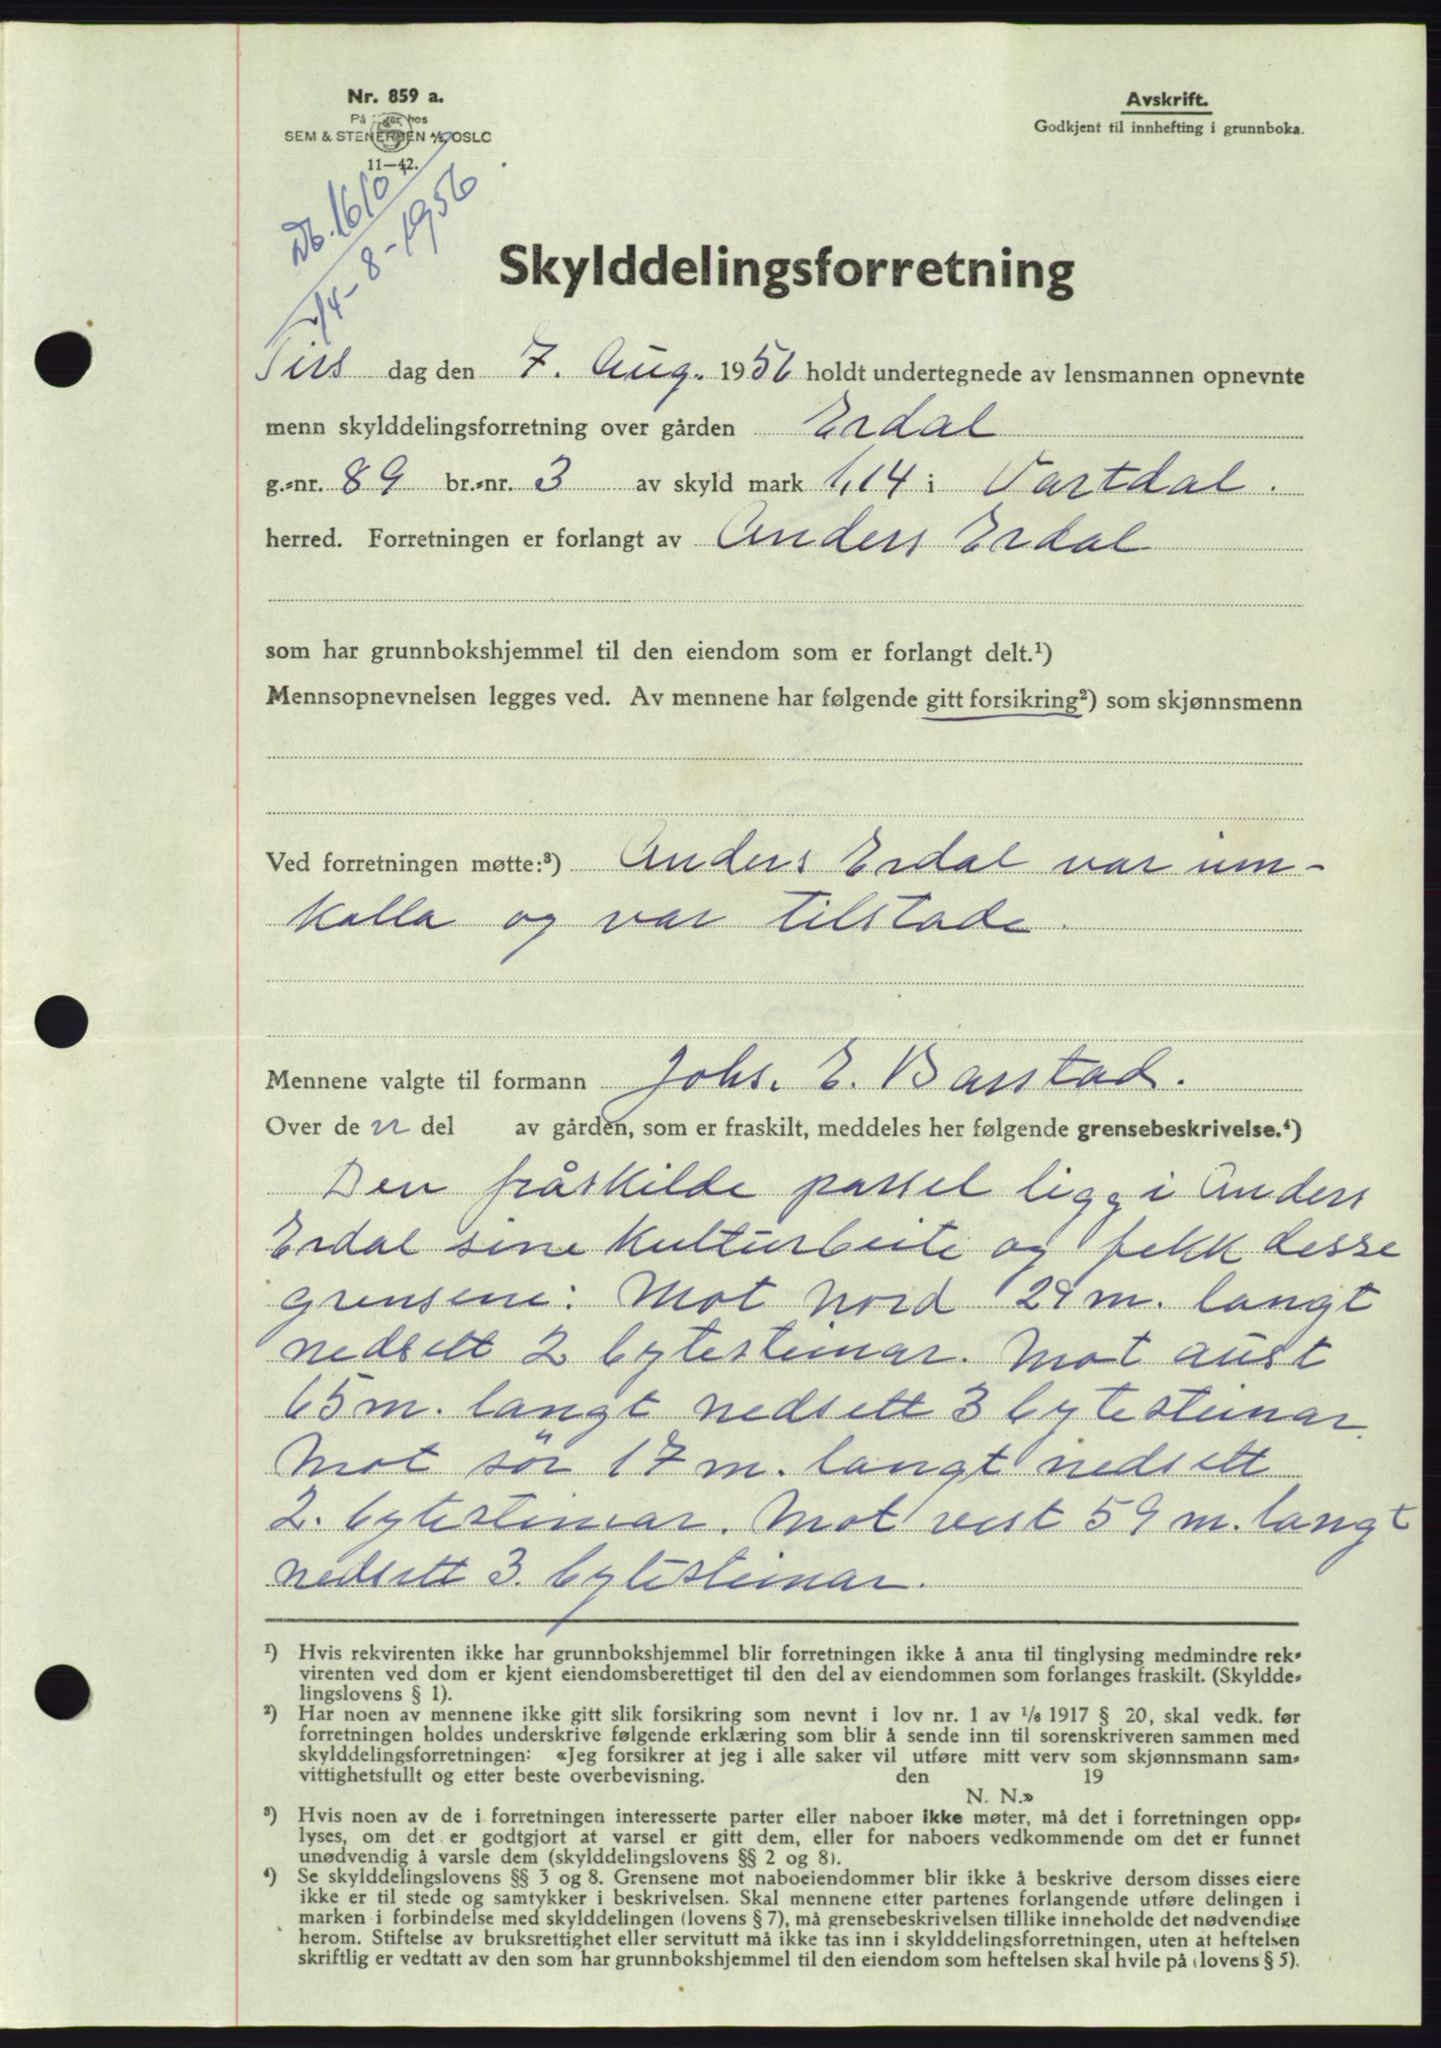 Nr. 859 a.
På lager hos
SEM & STENERSEN A/S OSLO
11—42.
Avskrift.
Godkjent til innhefting i grunnboka.
Db. 1610
14-8-1956
Skylddelingsforretning
Tirs dag den 7. Aug. 1956 holdt undertegnede av lensmannen opnevnte
menn skylddelingsforretning over gården Erdal
g.-nr. 89 br.-nr. 3 av skyld mark 1,14 i Vartdal.
herred. Forretningen er forlangt av Anders Erdal
som har grunnbokshjemmel til den eiendom som er forlangt delt.¹)
Mennsopnevnelsen legges ved. Av mennene har følgende gitt forsikring²) som skjønnsmenn
Ved forretningen møtte:³) Anders Erdal var inn-
kalla og var tilstade.
Mennene valgte til formann Johs. E. Barstad.
Over de n del av gården, som er fraskilt, meddeles her følgende grensebeskrivelse.⁴)
Den fråskilde parsel ligg i Anders
Erdal sine kulturbeite og fekk desse
grensene: Mot nord 29 m. langt
nedsett 2 bytesteinar. Mot aust
65 m. langt nedsett 3 bytesteinar.
Mot sör 17 m. langt nedsett
2. bytesteinar. Mot vest 59 m. langt
nedsett 3. bytesteinar.
¹) Hvis rekvirenten ikke har grunnbokshjemmel blir forretningen ikke å anta til tinglysing medmindre rek-
virenten ved dom er kjent eiendomsberettiget til den del av eiendommen som forlanges fraskilt. (Skyldde-
lingslovens § 1).
²) Har noen av mennene ikke gitt slik forsikring som nevnt i lov nr. 1 av 1/8 1917 § 20, skal vedk. før
forretningen holdes underskrive følgende erklæring som blir å sende inn til sorenskriveren sammen med
skylddelingsforretningen: «Jeg forsikrer at jeg i alle saker vil utføre mitt verv som skjønnsmann sam-
vittighetsfullt og etter beste overbevisning. den 19
N. N.»
³) Hvis noen av de i forretningen interesserte parter eller naboer ikke møter, må det i forretningen opp-
lyses, om det er godtgjort at varsel er gitt dem, eller for naboers vedkommende om det er funnet
unødvendig å varsle dem (skylddelingslovens §§ 2 og 8).
⁴) Se skylddelingslovens §§ 3 og 8. Grensene mot naboeiendommer blir ikke å beskrive dersom disses eiere
ikke er til stede og samtykker i beskrivelsen. Skal mennene etter partenes forlangende utføre delingen i
marken i forbindelse med skylddelingen (lovens § 7), må grensebeskrivelsen tillike inneholde det nødvendige
herom. Stiftelse av bruksrettighet eller servitutt må ikke tas inn i skylddelingsforretningen, uten at heftelsen
skriftlig er vedtatt av den som har grunnbokshjemmel til den eiendom som heftelsen skal hvile på (lovens § 5).